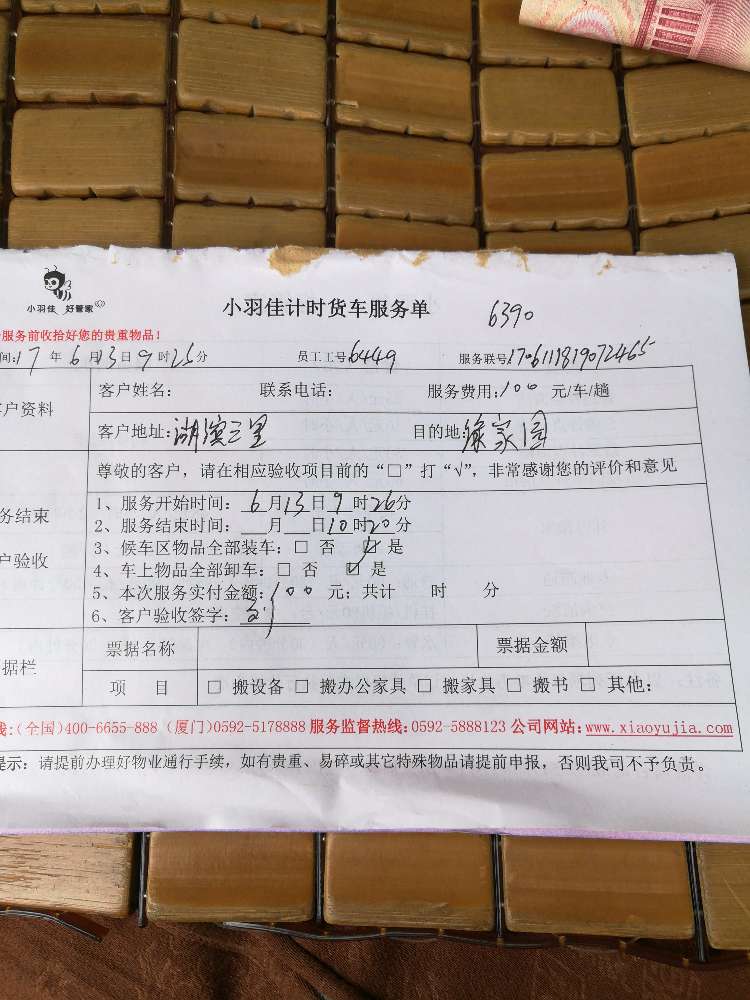 小羽佳 好管家
小羽佳计时货车服务单 6390
服务前收拾好您的贵重物品！
间：17年6月13日9时25分 员工工号6449 服务联号：1706111819072465
户资料
客户姓名： 联系电话： 服务费用：100元/车/趟
客户地址：湖滨三里 目的地：
尊敬的客户，请在相应验收项目前的“□”打“√”，非常感谢您的评价和意见
务结束
户验收
1、服务开始时间：6月13日9时26分
2、服务结束时间： 月 日10时20分
3、候车区物品全部装车：□ 否 □ 是
4、车上物品全部卸车：□ 否 ☑ 是
5、本次服务实付金额：100元；共计 时 分
6、客户验收签字：
据栏
票据名称 票据金额
项 目 □ 搬设备 □ 搬办公家具 □ 搬家具 □ 搬书 □ 其他：
线：(全国)400-6655-888 (厦门)0592-5178888 服务监督热线：0592-5888123 公司网站：www.xiaoyujia.com
提示：请提前办理好物业通行手续，如有贵重、易碎或其它特殊物品请提前申报，否则我司不予负责。